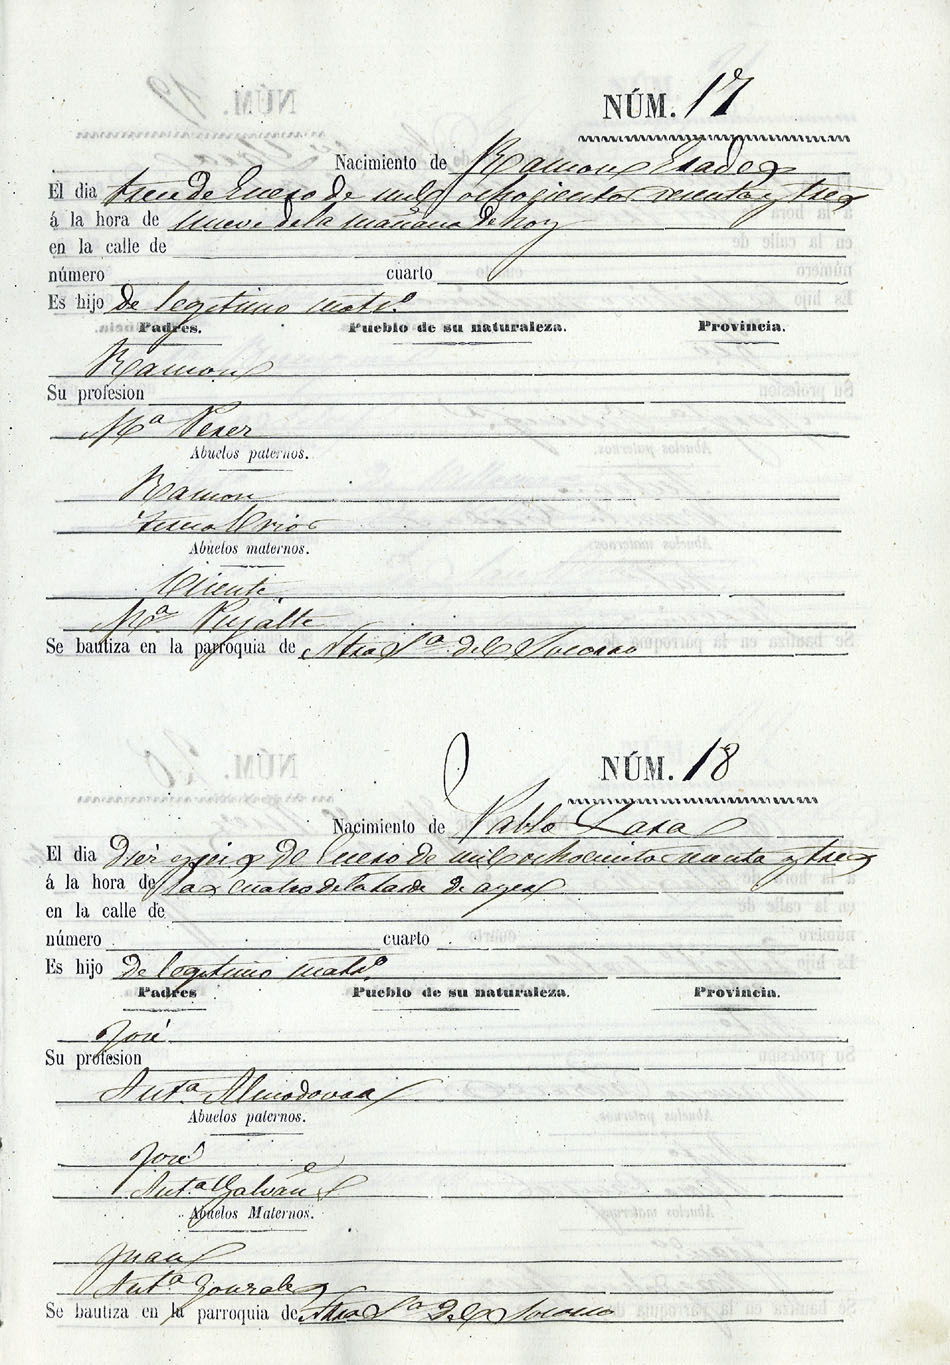 NÚM. 17
Nacimiento de Ramon Esadez
El dia trece de Enero de mil ochocientos noventa y tres
á la hora de nueve de la mañana de hoy
en la calle de
número cuarto
Es hijo de legitimo matr.º
Padres. Pueblo de su naturaleza. Provincia.
Ramon
Su profesion
Mª Perez
Abuelos paternos.
Ramon
Abuelos maternos.
Vicente
Mª Pujalte
Se bautiza en la parroquia de Ntra Sª del Socorro
NÚM. 18
Nacimiento de Pablo Lara
El dia Diez y seis de Enero de mil ochocientos noventa y tres
á la hora de las cuatro de la tarde de ayer
en la calle de
número cuarto
Es hijo de legitimo matr.º
Padres Pueblo de su naturaleza. Provincia.
José
Su profesion
Antª Almodovar
Abuelos paternos.
José
Antª Galvañ
Abuelos Maternos.
Juan
Antª Gonzalez
Se bautiza en la parroquia de Ntra Sª del Socorro